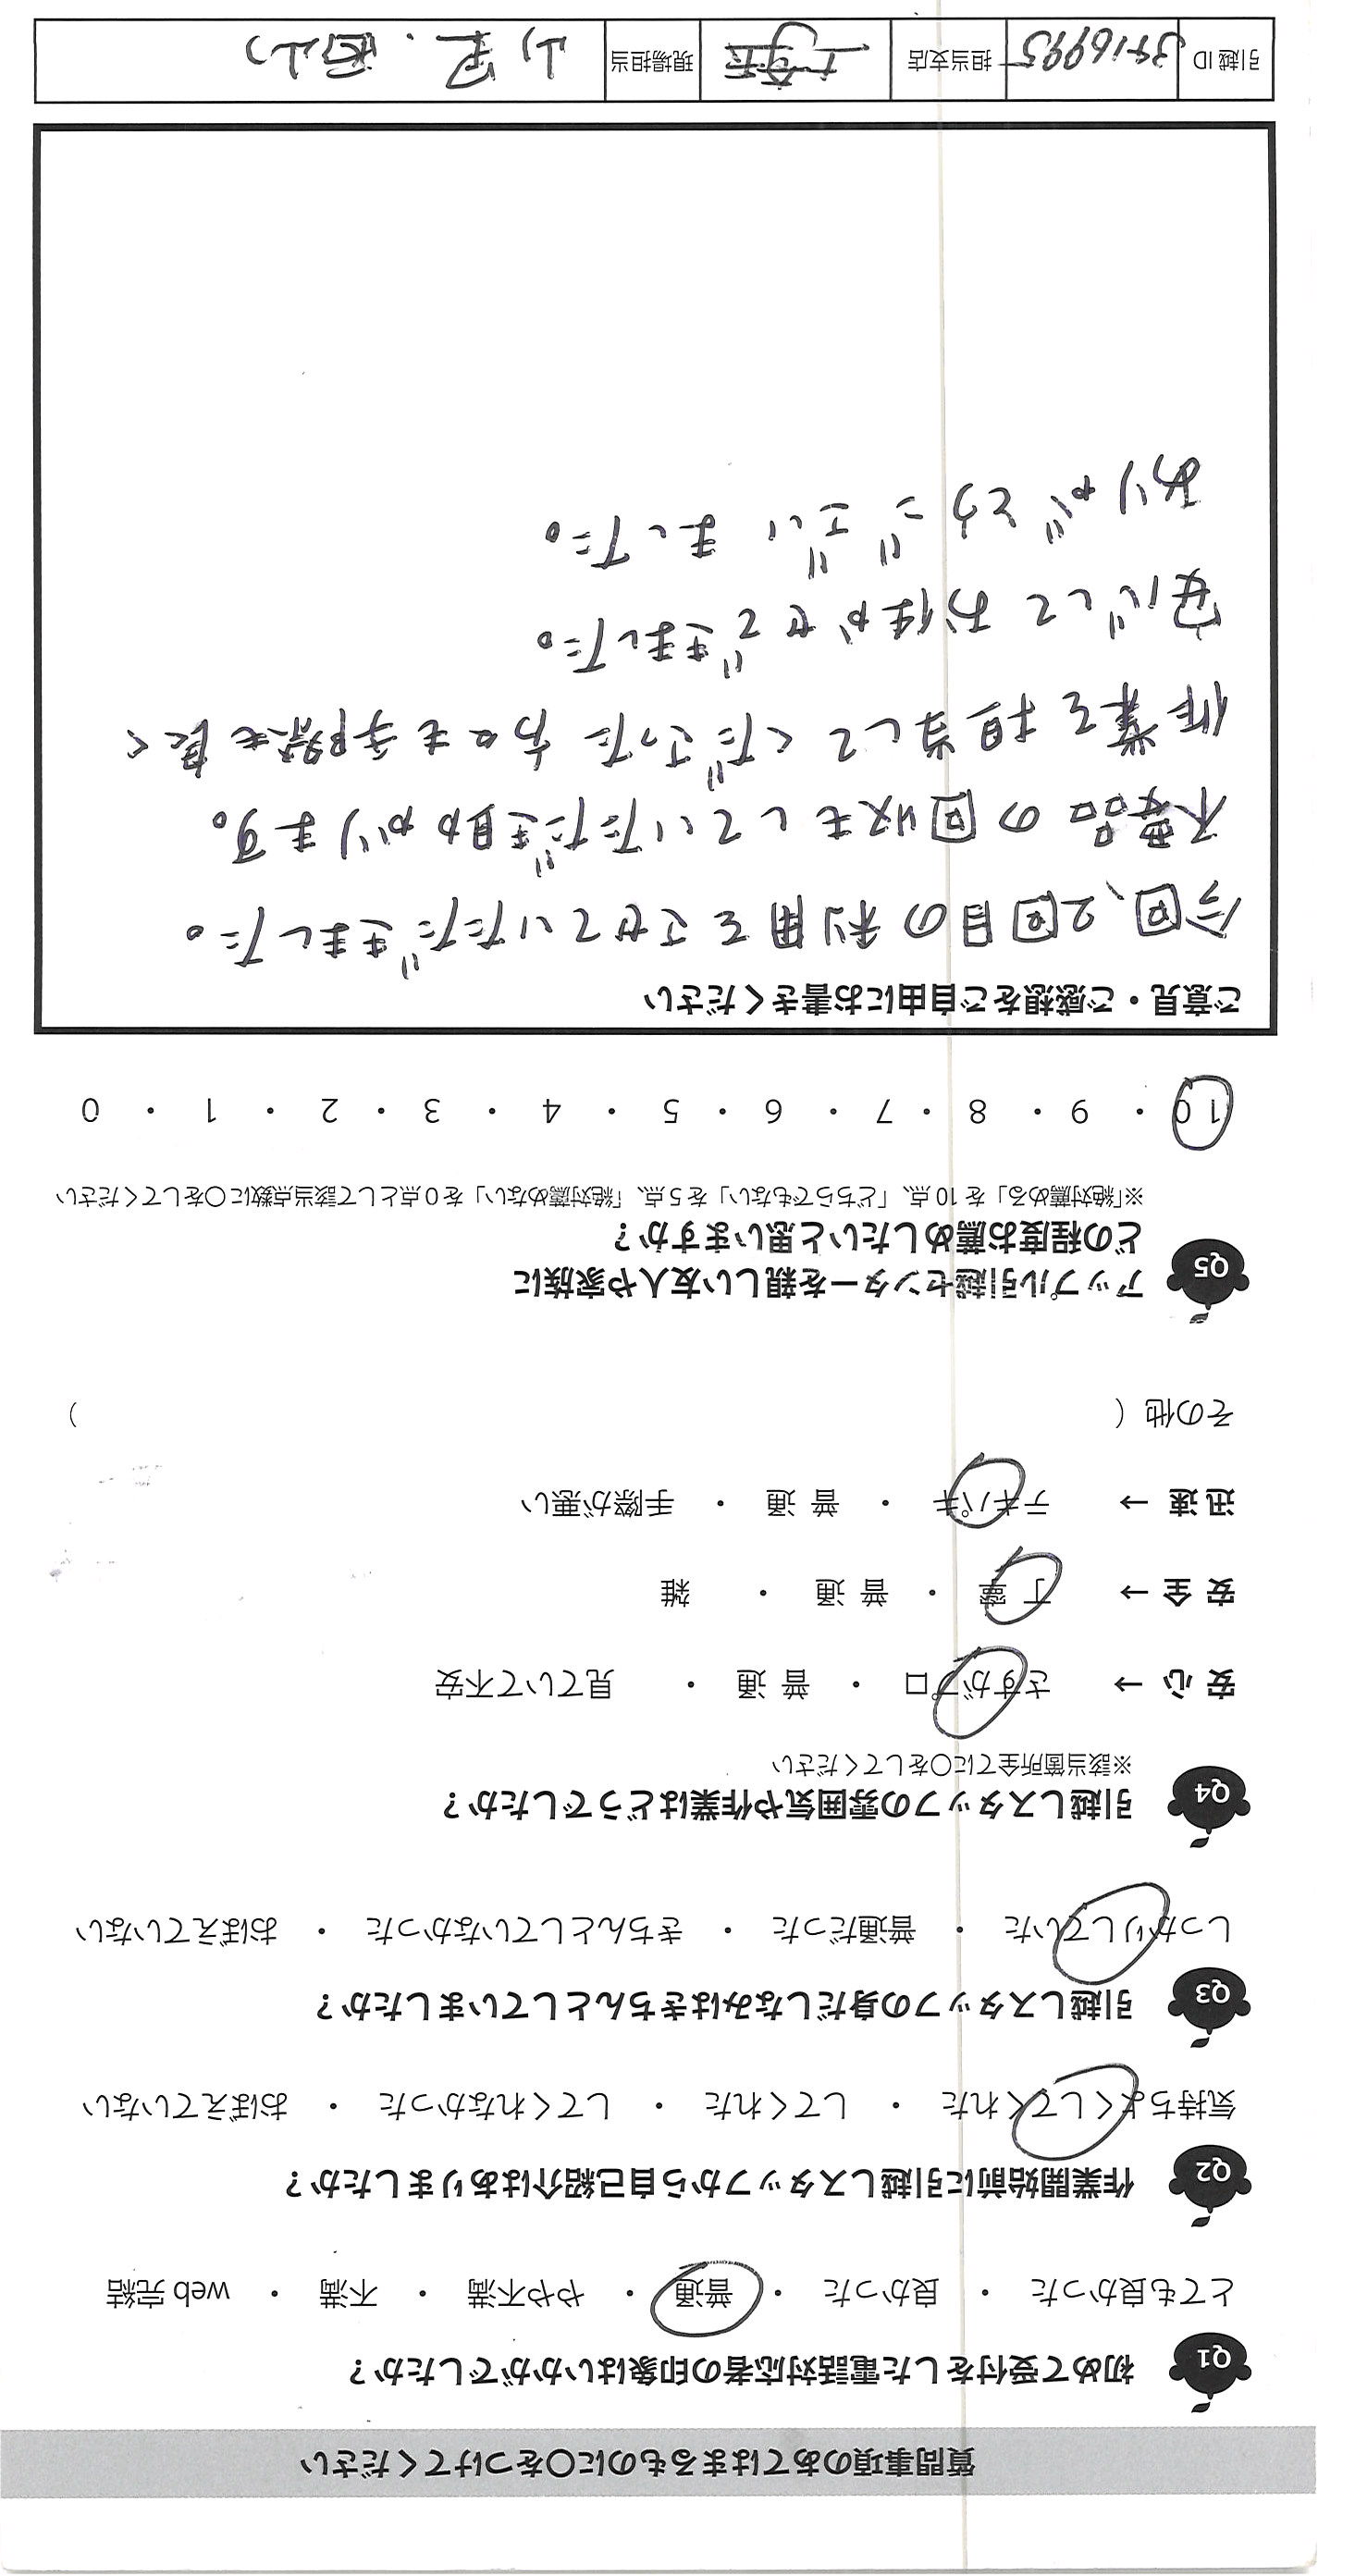 質問事項のあてはまるものに〇をつけてください
Q1 初めて受付をした電話対応者の印象はいかがでしたか？
とても良かった ・ 良かった ・ 普通 ・ やや不満 ・ 不満 ・ web 完結
Q2 作業開始前に引越しスタッフから自己紹介はありましたか？
気持ちよくしてくれた ・ してくれた ・ してくれなかった ・ おぼえていない
Q3 引越しスタッフの身だしなみはきちんとしていましたか？
しっかりしていた ・ 普通だった ・ きちんとしていなかった ・ おぼえていない
Q4 引越しスタッフの雰囲気や作業はどうでしたか？
※該当箇所全てに〇をしてください
安 心 → さすがプロ ・ 普 通 ・ 見ていて不安
安 全 → 丁 寧 ・ 普 通 ・ 雑
迅 速 → テキパキ ・ 普 通 ・ 手際が悪い
その他（ ）
Q5 アップル引越センターを親しい友人や家族に
どの程度お薦めしたいと思いますか？
※「絶対薦める」を 10 点、「どちらでもない」を 5 点、「絶対薦めない」を 0 点として該当点数に〇をしてください
10 ・ 9 ・ 8 ・ 7 ・ 6 ・ 5 ・ 4 ・ 3 ・ 2 ・ 1 ・ 0
ご意見・ご感想をご自由にお書きください
今回、2回目の利用をさせていただきました。
不要品の回収もしていただき助かります。
作業を担当してくださった方々も手際も良く
安心してお任かせできました。
ありがとうございました。
引越 ID 3416995 担当支店 現場担当